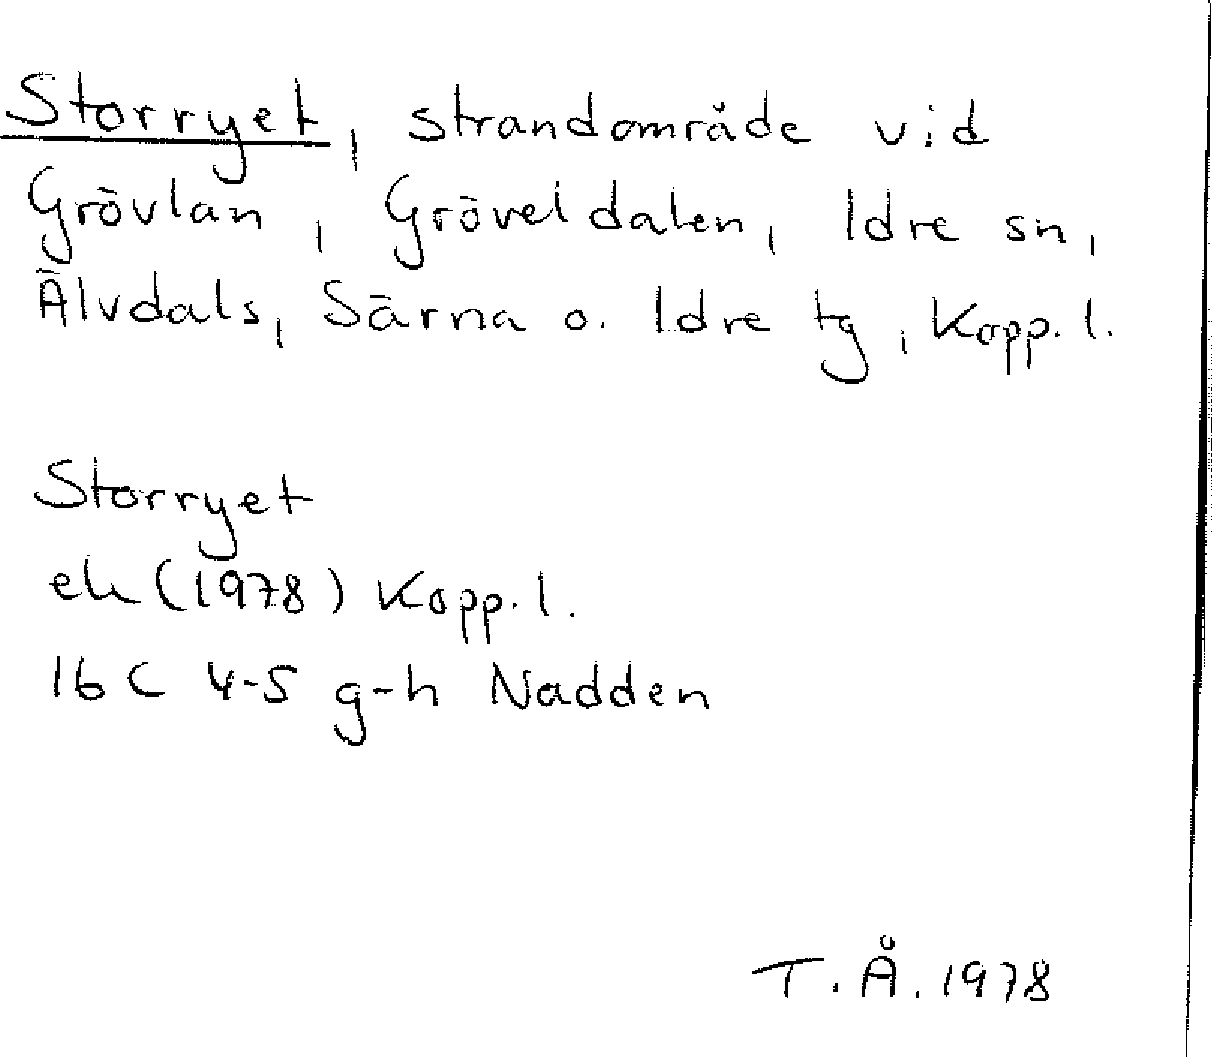 Storryet, strandområde vid
Grövlan, Gröveldalen, Idre sn,
Älvdals, Särna o. Idre tg, Kopp. l.
Storryet
ek (1978) Kopp. l.
16 C 4-5 g-h Nadden
T. Å. 1978